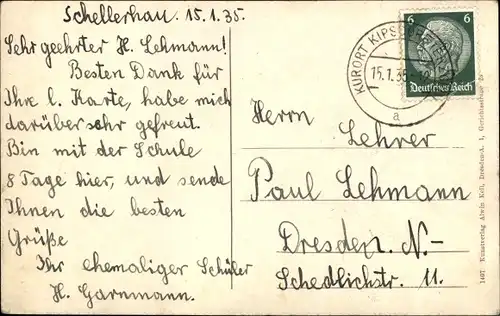 Schellerhau. 15.1.35.
Sehr geehrter H. Lehmann!
Besten Dank für
Ihre l. Karte, habe mich
darüber sehr gefreut.
Bin mit der Schule
8 Tage hier, und sende
Ihnen die besten
Grüße
Ihr ehemaliger Schüler
H. Garnmann.
KURORT KIPSDORF
15.1.35
a
6 6
Deutsches Reich
Herrn Lehrer
Paul Lehmann
Dresden. N.-
Schedlichstr. 11.
1407 Kunstverlag Alwin Keil, Dresden-A. 1,